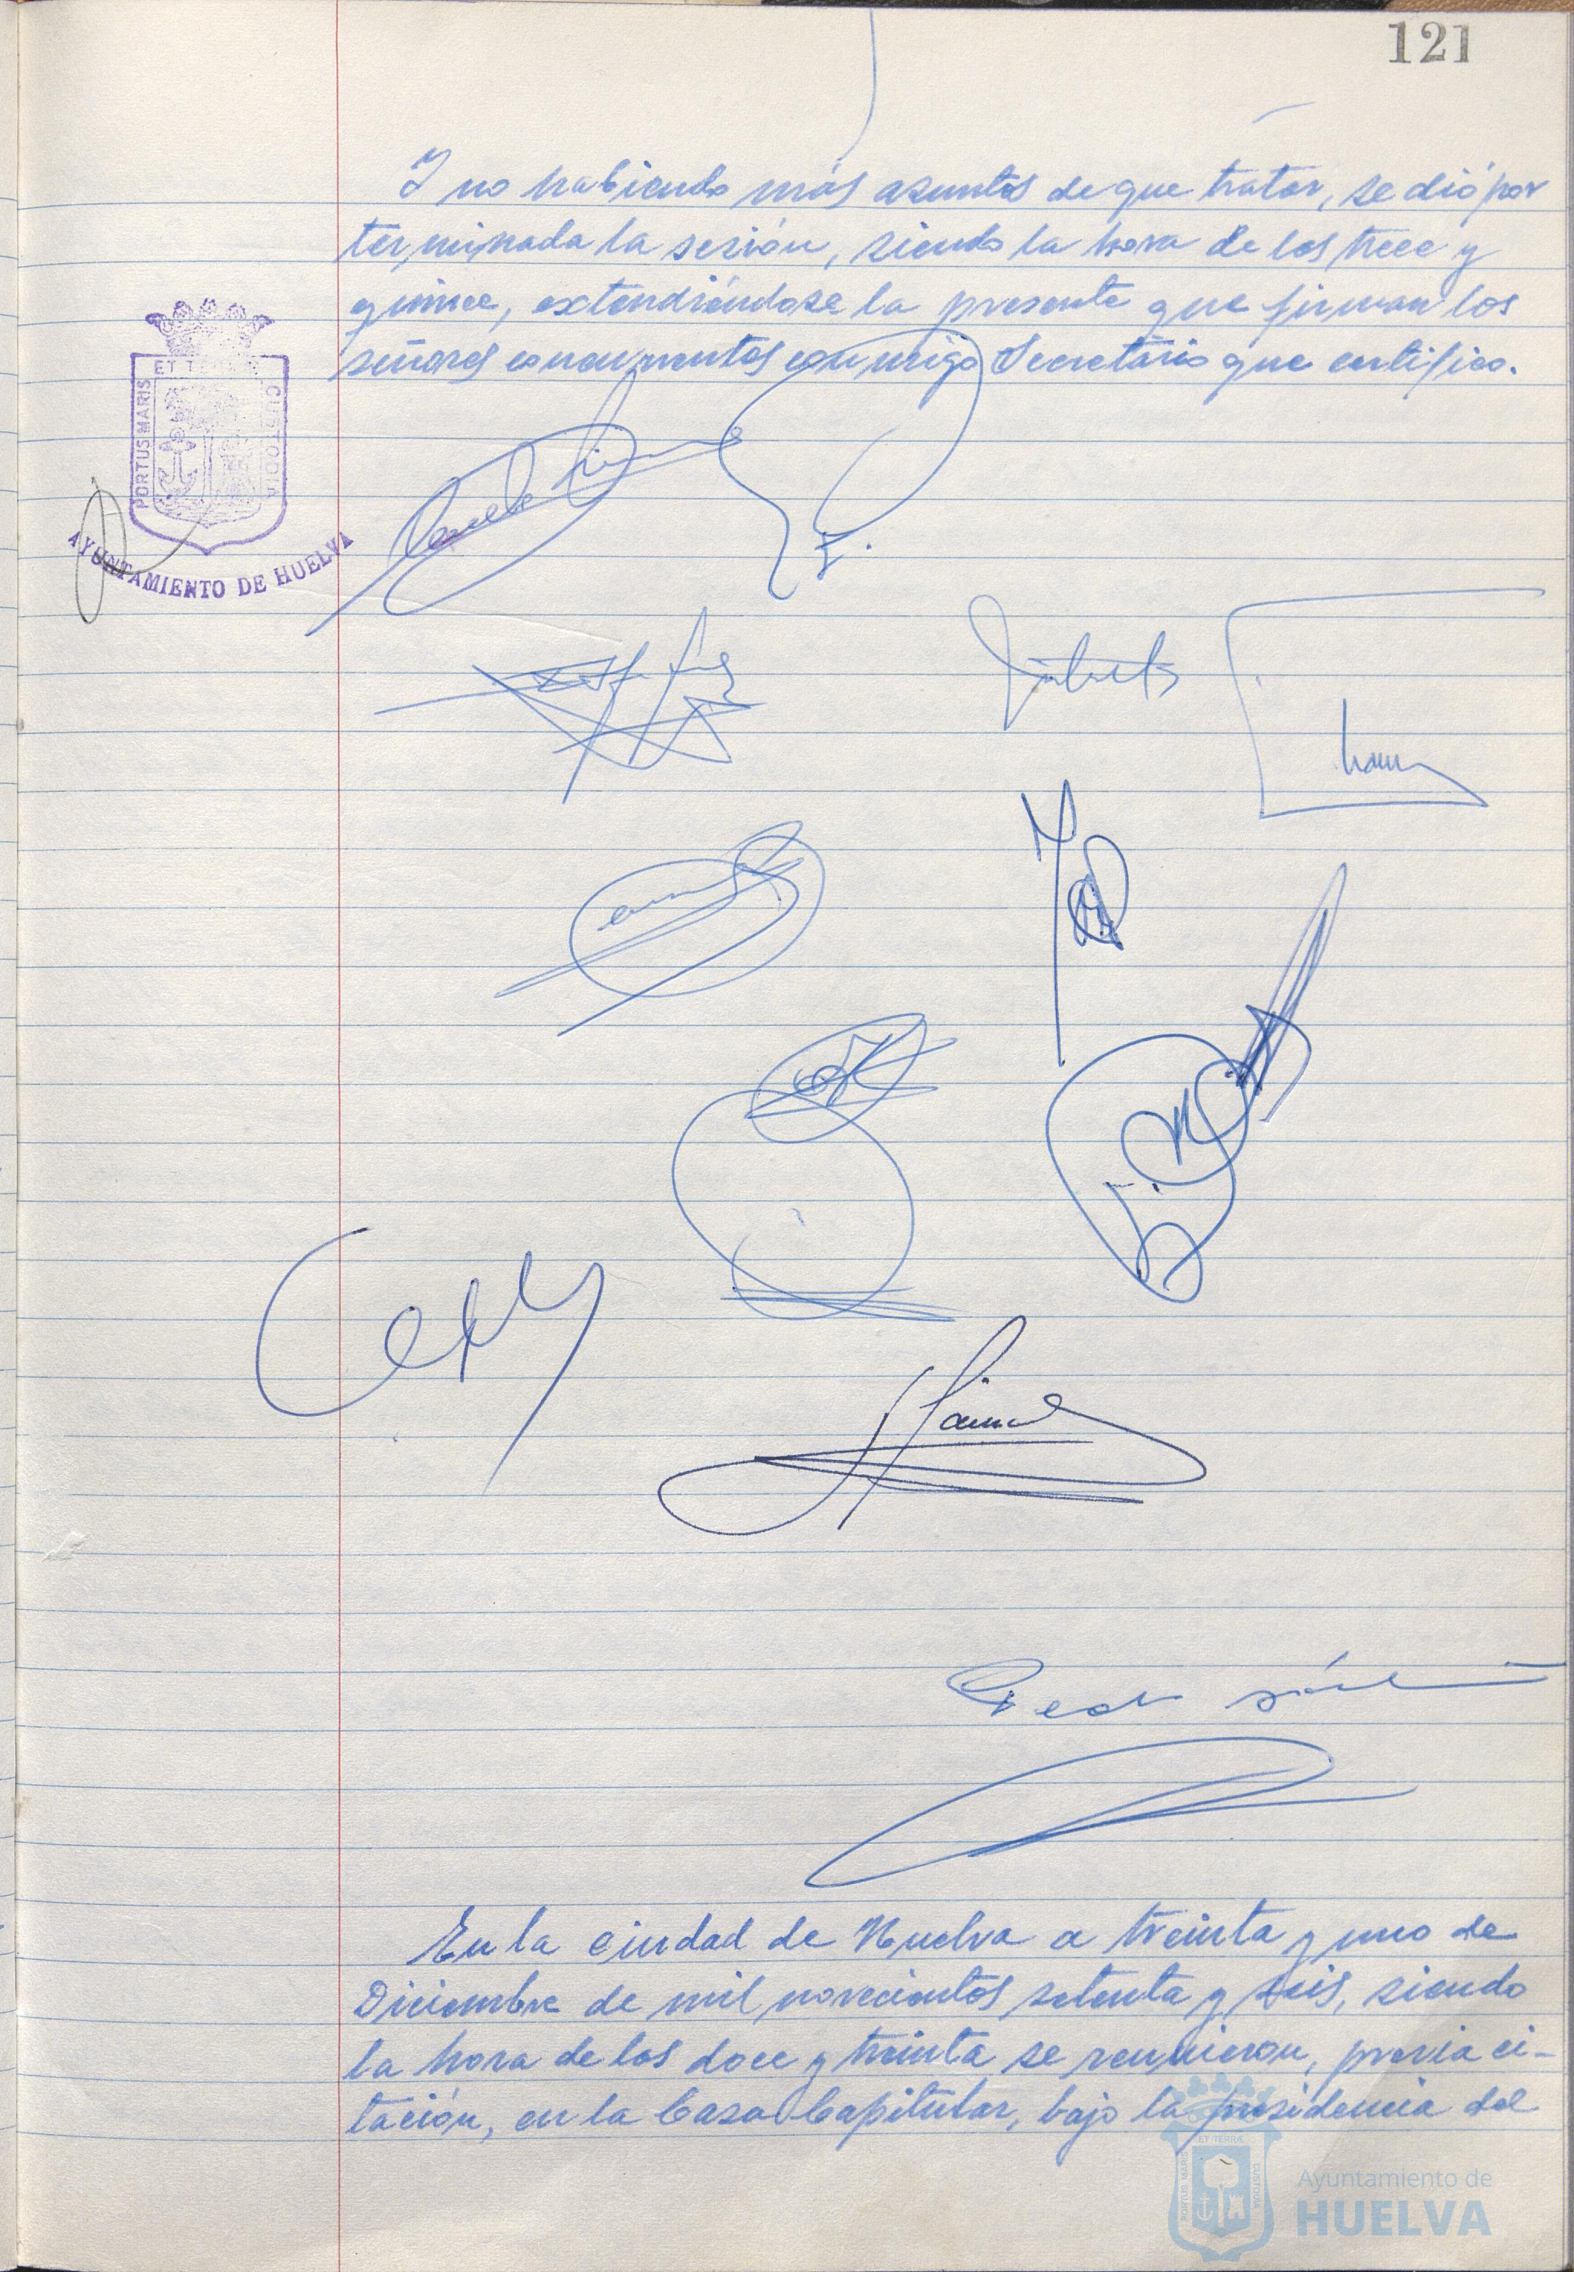 121
Y no habiendo más asuntos de que tratar, se dió por
terminada la sesión, siendo la hora de las trece y
quince, extendiéndose la presente que firman los
señores concurrentes conmigo Secretario que certifico.
PORTUS MARIS ET TERRAE CUSTODIA
AYUNTAMIENTO DE HUELVA
En la ciudad de Huelva a treinta y uno de
Diciembre de mil novecientos setenta y seis, siendo
la hora de las doce y treinta se reunieron, previa ci-
tación, en la Casa Capitular, bajo la presidencia del
PORTUS MARIS ET TERRÆ CUSTODIA
Ayuntamiento de
HUELVA